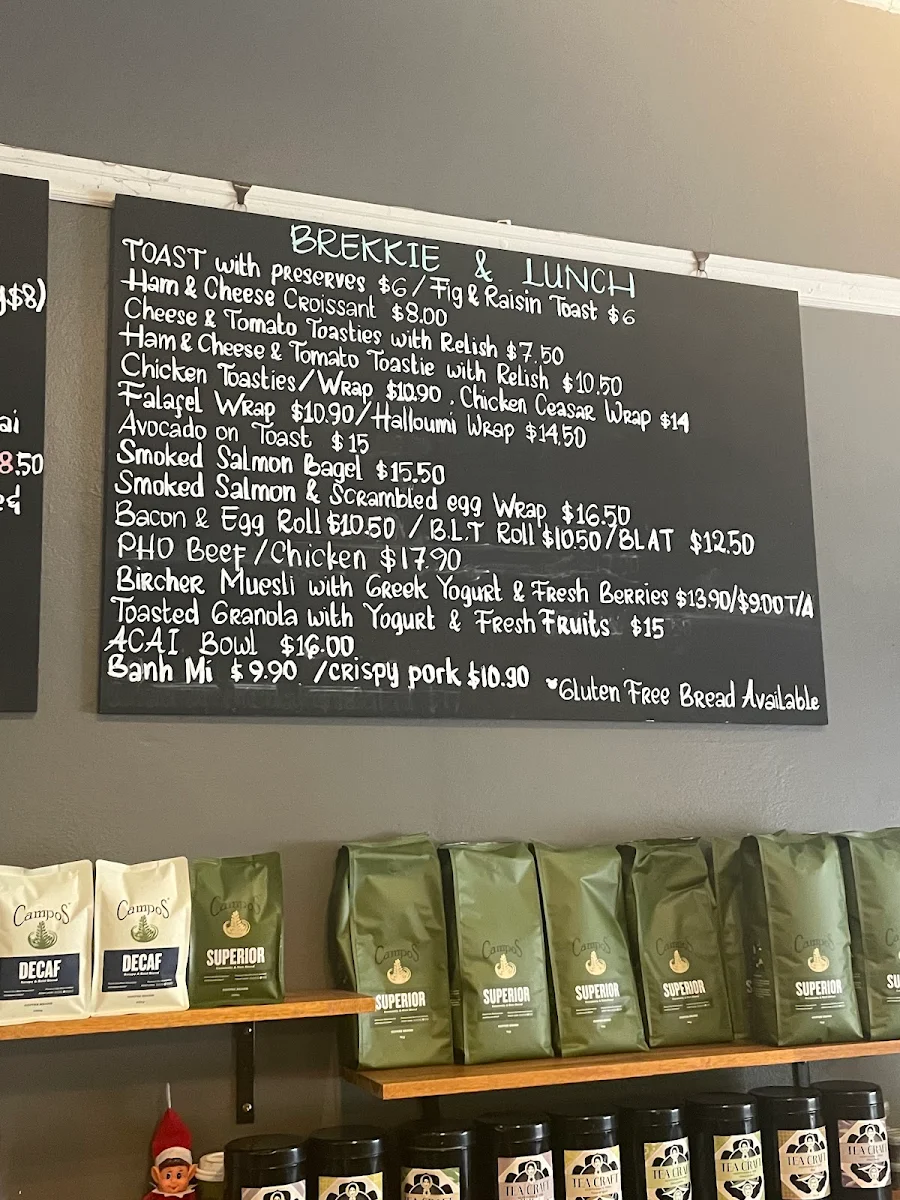 BREKKIE & LUNCH
TOAST with PRESERVES $6/Fig & Raisin Toast $6
Ham & Cheese Croissant $8.00
Cheese & Tomato Toasties with Relish $7.50
Ham & Cheese & Tomato Toastie with Relish $10.50
Chicken Toasties/Wrap $10.90 . Chicken Ceasar Wrap $14
Falafel Wrap $10.90/Halloumi Wrap $14.50
Avocado on Toast $15
Smoked Salmon Bagel $15.50
Smoked Salmon & Scrambled egg Wrap $16.50
Bacon & Egg Roll $10.50 / B.L.T Roll $10.50/BLAT $12.50
PHO Beef/Chicken $17.90
Bircher Muesli with Greek Yogurt & Fresh Berries $13.90/$9.00T/A
Toasted Granola with Yogurt & Fresh Fruits $15
ACAI Bowl $16.00
Banh Mi $9.90 /crispy pork $10.90
Gluten Free Bread Available
$8)
ai
8.50
ed
Campos
DECAF
Campos
DECAF
Campos
SUPERIOR
Campos
SUPERIOR
Campos
SUPERIOR
Campos
SUPERIOR
Campos
SUPERIOR
Campos
SUPERIOR
SU
TEA CRAFT
TEA CRAFT
TEA CRAFT
TEA CRAFT
TEA CRAFT
TEA CRAFT